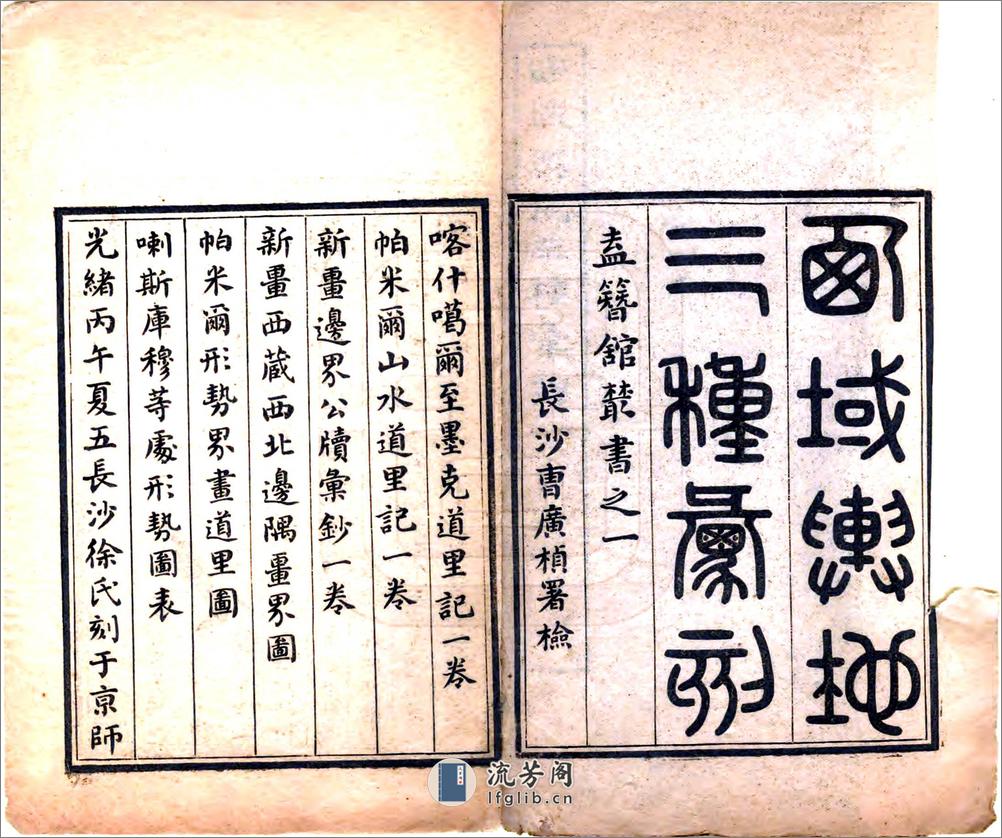 西域輿地
三種彙刻
盍簪舘叢書之一
長沙曹廣楨署檢
喀什噶爾至墨克道里記一卷
帕米爾山水道里記一卷
新畺邊界公牘彙鈔一卷
新畺西藏西北邊隅畺界圖
帕米爾形勢界畫道里圖
喇斯庫穆等處形勢圖表
光緒丙午夏五長沙徐氏刻于京師
流芳阁
lfglib.cn